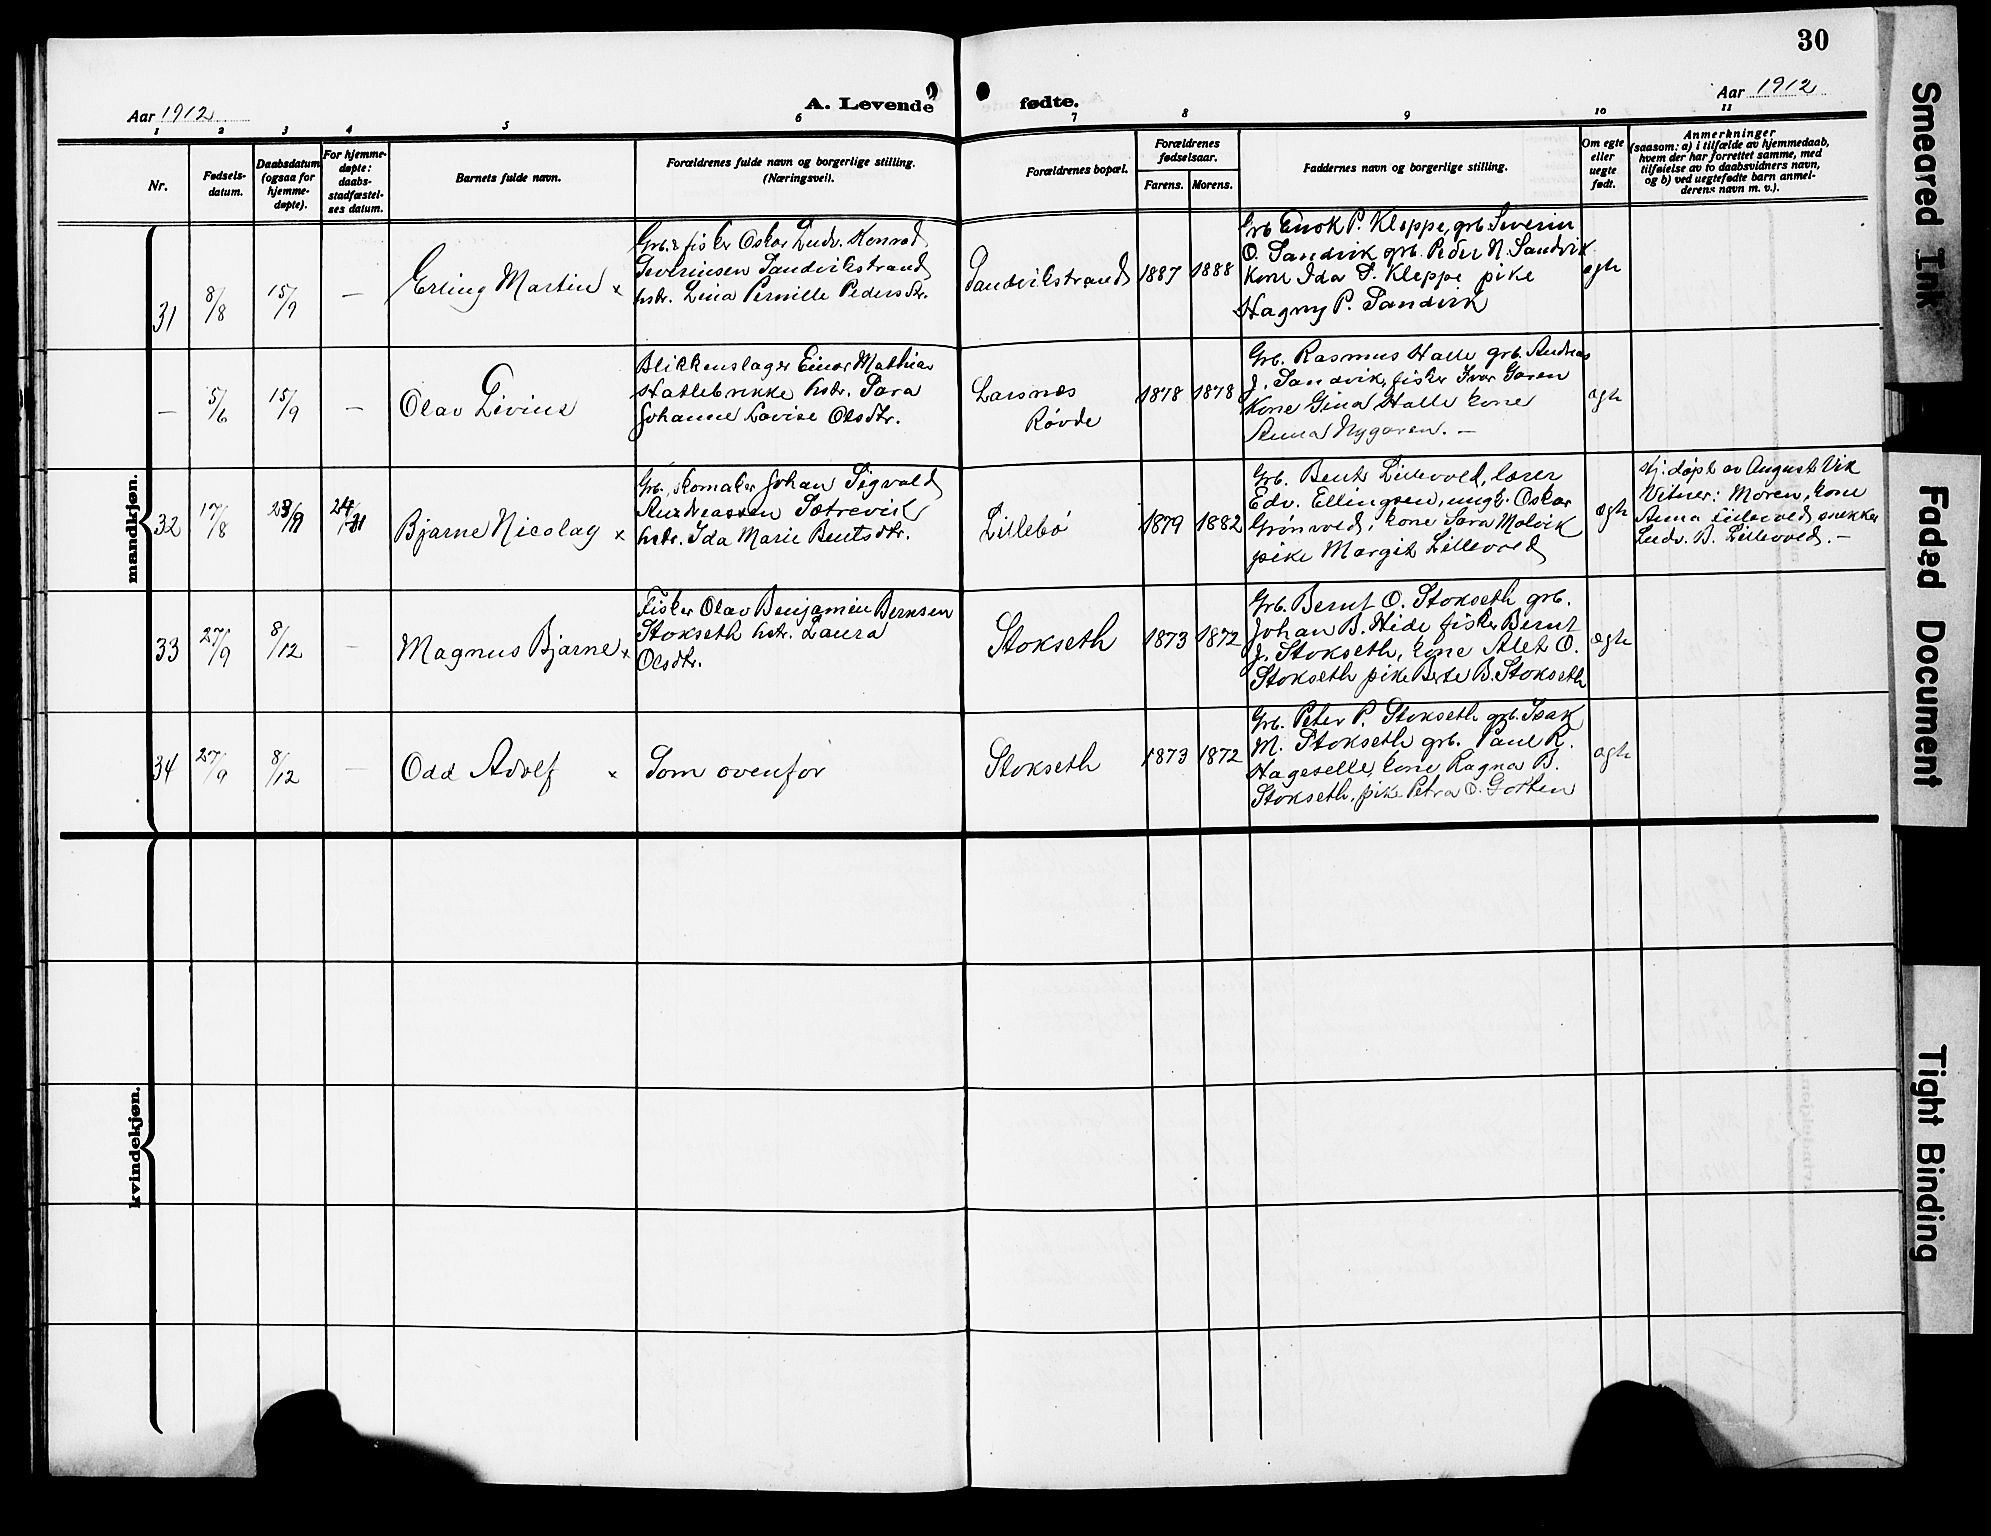 30
Aar 1912
A. Levende fødte.
Aar 1912
1 2 3 4 5 6 7 8 9 10 11
Nr.
Fødsels-
datum.
Daabsdatum
(ogsaa for
hjemme-
døpte).
For hjemme-
døpte:
daabs-
stadfæstel-
ses datum.
Barnets fulde navn.
Forældrenes fulde navn og borgerlige stilling.
(Næringsvei).
Forældrenes bopæl.
Forældrenes
fødselsaar.
Farens. Morens.
Faddernes navn og borgerlige stilling.
Om egte
eller
uegte
født.
Anmerkninger
(saasom: a) i tilfælde av hjemmedaab,
hvem der har forrettet samme, med
tilføielse av to daabsvidners navn,
og b) ved uegtefødte barn anmel-
derens navn m. v.).
mandkjøn.
31 8/8 15/9 — Erling Martin x
Grb. & fisker Oskar Ludv. Konrad
Severinsen Sandvikstrand
hstr. Lina Pernille Pedersdtr.
Sandvikstrand 1887 1888
Grb Enok P. Kleppe, grb Severin
O. Sandvik grb. Peder N. Sandvik
Kone Ida S. Kleppe pike
Hagny P. Sandvik
egte
— 5/6 15/9 — Olav Livius
Blikkenslager Einar Mathias
Hatlebrekke hstr. Sara
Johanne Lovise Olsdtr.
Larsnes
Røvde
1878 1878
Grb. Rasmus Halle grb. Andreas
J. Sandvik, fisker Ivar
Kone Gina Halle kone
Anna Nygaren. —
egte
32 17/8 Bjarne Nicolay x
Grb., skomaker Johan Sigvald
Andreassen Sætrevik
hstr. Ida Marie Bentsdtr.
Lillebø 1879 1882
Grb. Bent Lillevold, lærer
Edv. Ellingsen, ungk. Oskar
Grønvold, kone Sara Molvik
pike Margit Lillevold
egte
Hj. døpt av August Vik
Vitner: Moren, kone
Anna Lillevold, snekker
Ludv. B. Lillevold. —
33 27/9 8/12 — Magnus Bjarne x
Fisker Olav Benjamin Berntsen
Stokseth hstr. Laura
Olsdtr.
Stokseth 1873 1872
Grb. Bernt O. Stokseth grb.
Johan B. Hide fisker Bernt
J. Stokseth, kone Alet O.
Stokseth pike Berte B. Stokseth
egte
34 27/9 8/12 — Odd Adolf x
Som ovenfor
Stokseth 1873 1872
Grb. Peter P. Stokseth grb. Isak
M. Stokseth grb. Paul R.
Hageselle, kone Ragna B.
Stokseth, pike Petra O.
egte
kvindekjøn.
Smeared Ink
Faded Document
Tight Binding